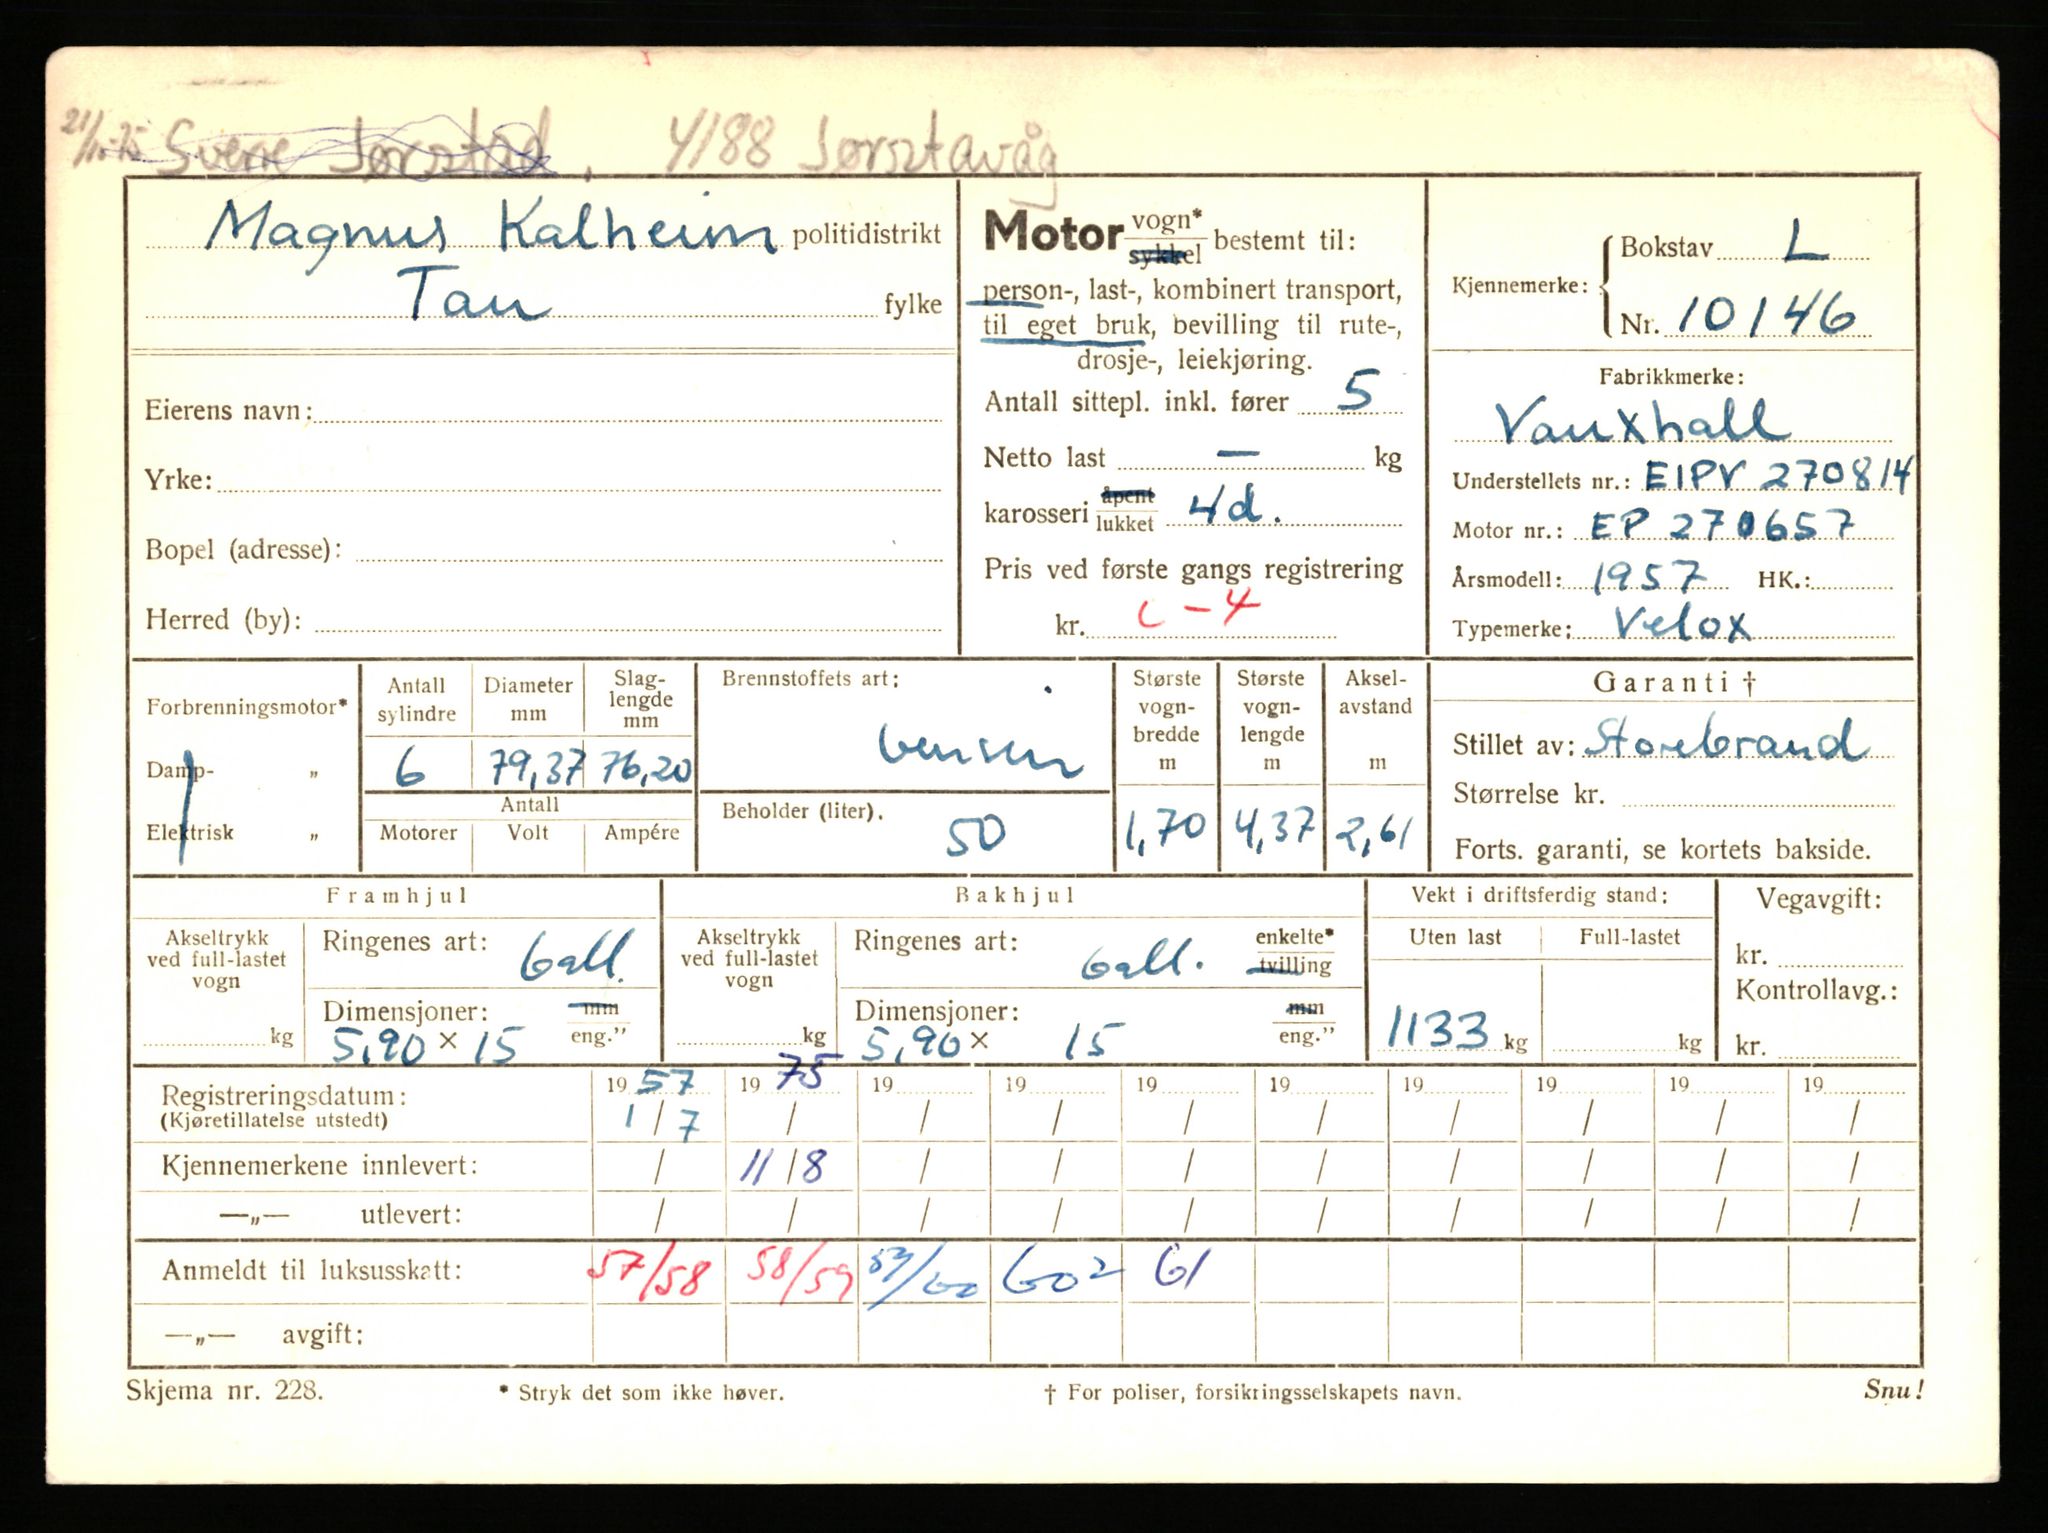 21/10-75 Sverre Jørstad, 4188 Jørsztavåg
Magnus Kalheim politidistrikt
Tau fylke
Eierens navn:
Yrke:
Bopel (adresse):
Herred (by):
Motor vogn* sykkel bestemt til:
person-, last-, kombinert transport,
til eget bruk, bevilling til rute-,
drosje-, leiekjøring.
Antall sittepl. inkl. fører 5
Netto last — kg
karosseri åpent lukket 4d.
Pris ved første gangs registrering
kr. C-4
Kjennemerke: Bokstav L
Nr. 10146
Fabrikkmerke:
Vauxhall
Understellets nr.: EIPV 270814
Motor nr.: EP 270657
Årsmodell: 1957 HK.:
Typemerke: Velox
Forbrenningsmotor*
Damp- „
Elektrisk „
Antall sylindre
Diameter mm
Slaglengde mm
6 79,37 76,20
Antall
Motorer Volt Ampére
Brennstoffets art:
bensin
Beholder (liter).
50
Største vognbredde m
1,70
Største vognlengde m
4,37
Akselavstand m
2,61
Garanti †
Stillet av: Storebrand
Størrelse kr.
Forts. garanti, se kortets bakside.
Framhjul
Akseltrykk ved full-lastet vogn
kg
Ringenes art: ball.
Dimensjoner: mm
5,90 × 15 eng."
Bakhjul
Akseltrykk ved full-lastet vogn
kg
Ringenes art: ball. enkelte* tvilling
Dimensjoner: mm
5,90 × 15 eng."
Vekt i driftsferdig stand:
Uten last Full-lastet
1133 kg kg
Vegavgift:
kr.
Kontrollavg.:
kr.
Registreringsdatum: 19 57 19 75 19 19 19 19 19 19 19 19
(Kjøretillatelse utstedt) 1/7 / / / / / / / / /
Kjennemerkene innlevert: / 11/8 / / / / / / / /
—„— utlevert: / / / / / / / / / /
Anmeldt til luksusskatt: 57/58 58/59 59/60 60² 61
—„— avgift:
Skjema nr. 228. * Stryk det som ikke høver. † For poliser, forsikringsselskapets navn. Snu!